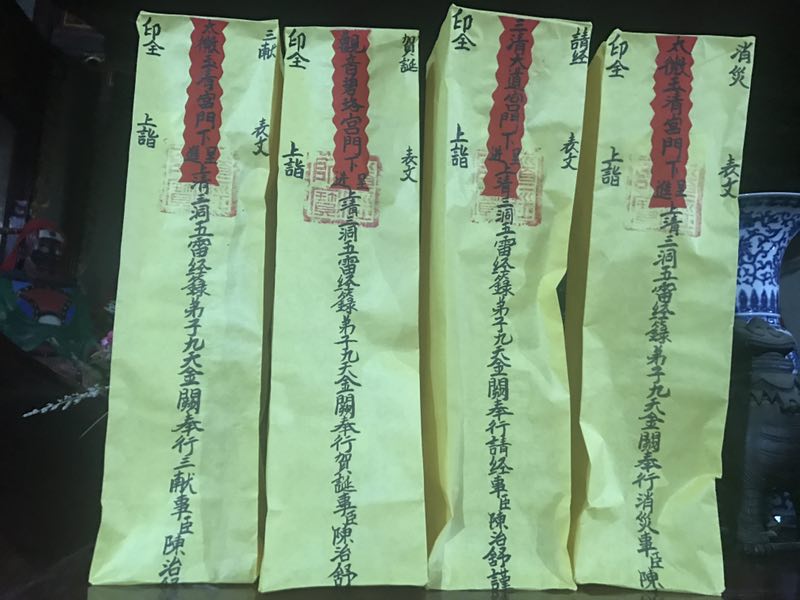 消災
表文
太微玉清宮門下
呈進
上清三洞五雷经籙弟子九天金闕奉行消災事臣陳
印全
上詣
請经
表文
三清大道宮門下
呈進
上清三洞五雷经籙弟子九天金闕奉行請经事臣陳治舒謹
印全
上詣
賀誕
表文
觀音碧落宮門下
呈進
上清三洞五雷经籙弟子九天金闕奉行賀誕事臣陳治舒
印全
上詣
三献
表文
太微玉清宮門下
呈進
上清三洞五雷经籙弟子九天金闕奉行三献事臣陳治舒
印全
上詣